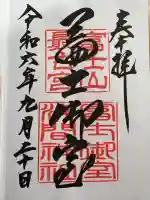 奉拝
冨士山
最古宮
冨士御室
冨士御室
浅間神社
令和六年九月二十日